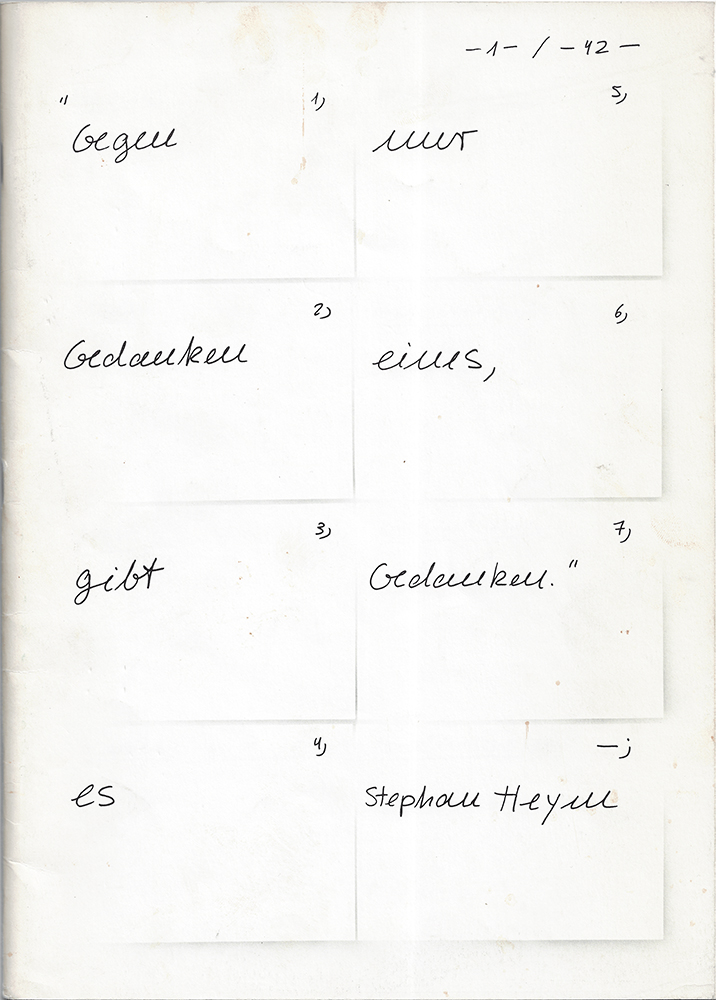 -1- / -42-
" 1)
Gegen
2)
Gedanken
3)
gibt
4)
es
5)
nur
6)
eines,
7)
Gedanken."
—;
Stephan Heym